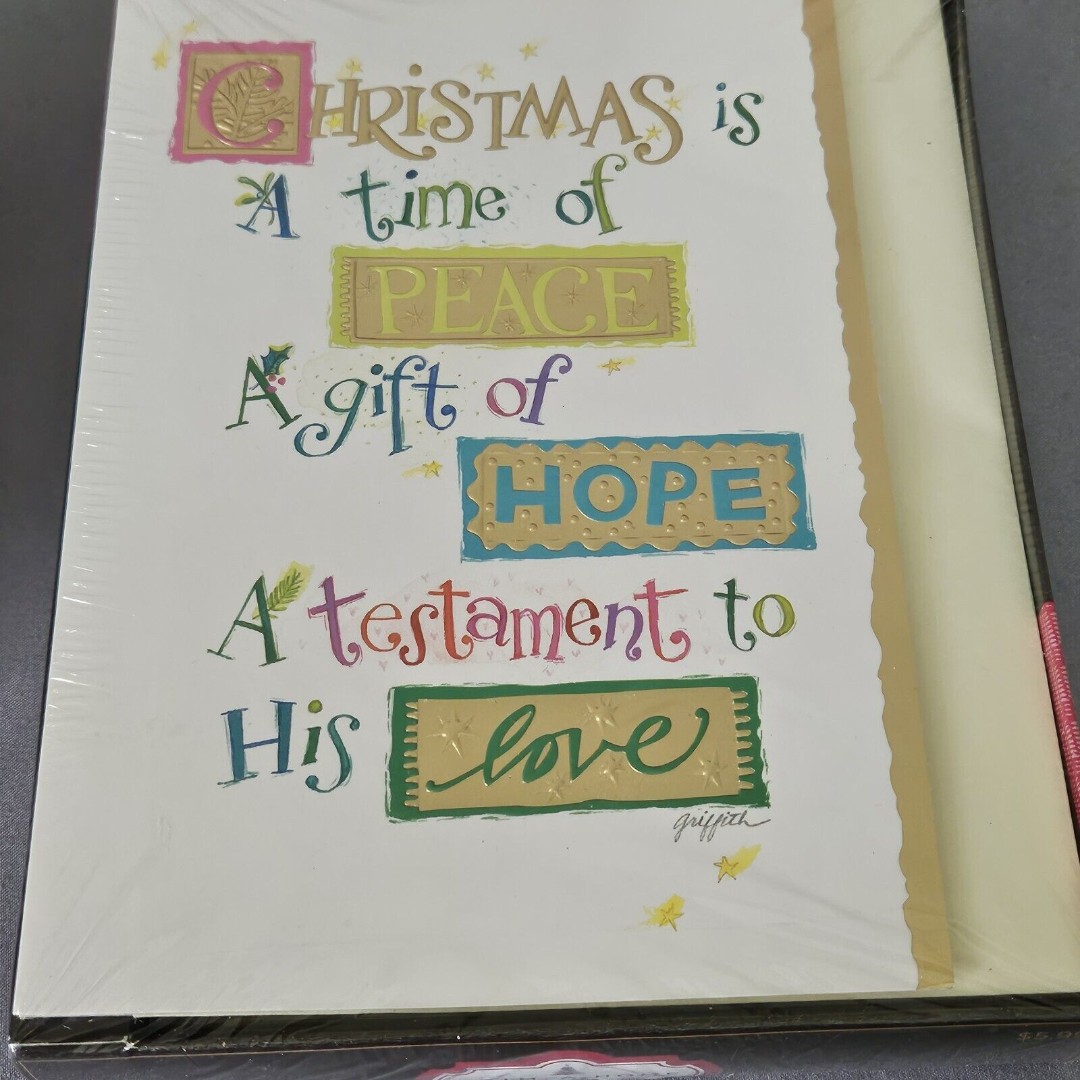 CHRISTMAS is
A time of
PEACE
A gift of
HOPE
A testament to
His love
griffith